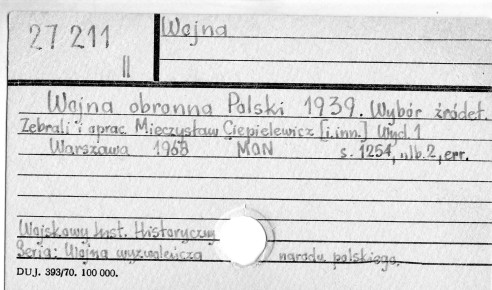 27 211
II
Wojna
Wojna obronna Polski 1939. Wybór źródeł.
Zebrali i oprac. Mieczysław Ciepielewicz [i.inn.] Wyd. 1
Warszawa 1968 MON s. 1254, nlb. 2, err.
Wojskowy Inst. Historyczny
Seria: Wojna wyzwoleńcza narodu polskiego.
DUJ. 393/70. 100 000.